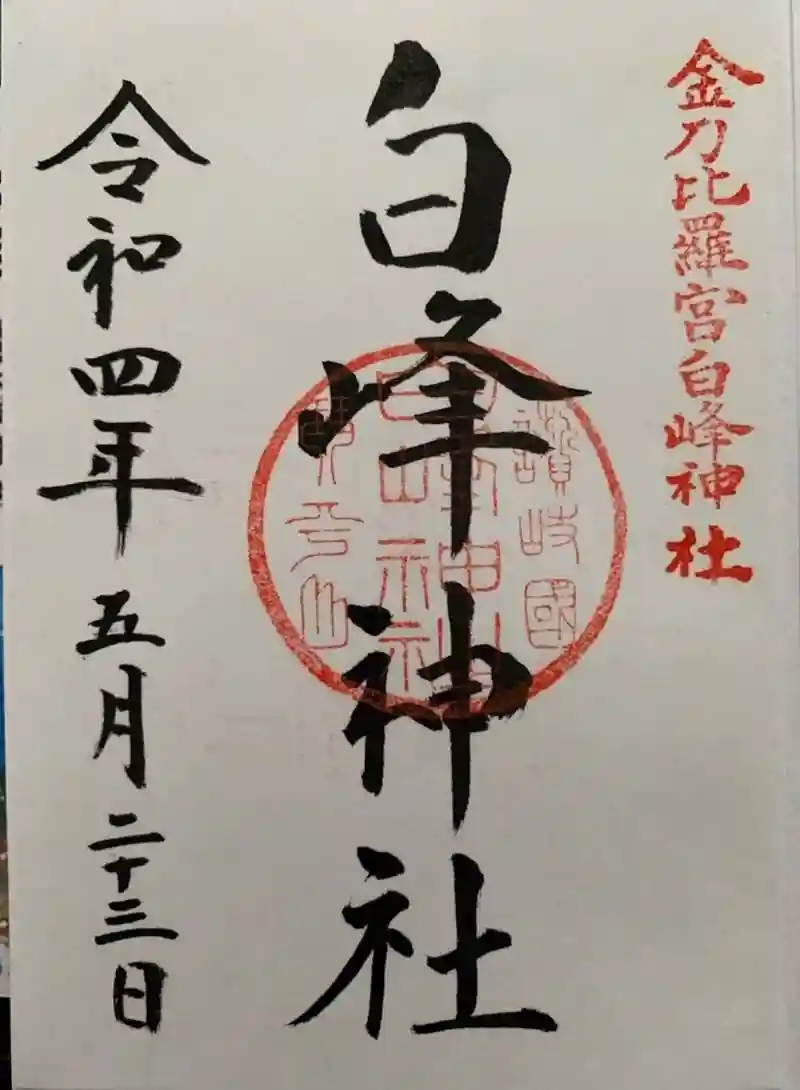 金刀比羅宮白峰神社
白峰神社
讃岐國
令和四年五月二十三日